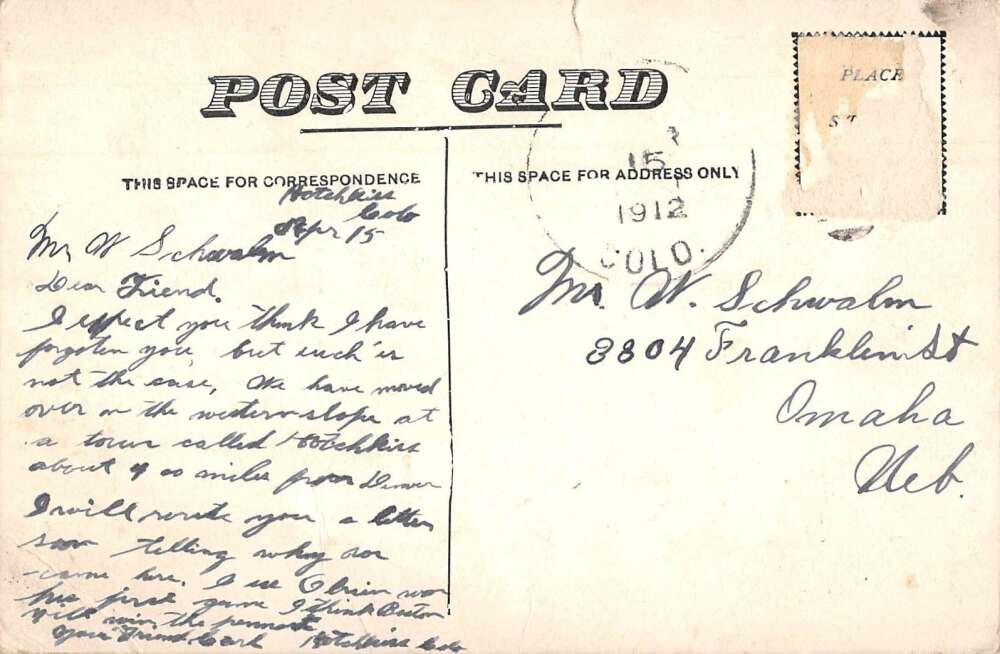 POST CARD
PLACE
THIS SPACE FOR CORRESPONDENCE
THIS SPACE FOR ADDRESS ONLY
15
1912
COLO.
Hotchkiss
Colo
Apr 15
Mr W Schwalm
Dear Friend.
I expect you think I have
forgoten you, but such is
not the case, We have moved
over on the western slope at
a town called Hotchkiss
about 400 miles from Denver
I will write you a letter
soon telling why we
came here. I see O'brien won
his first game I think Boston
will win the pennant
Your Friend Carl Hotchkiss Colo
Mr. W. Schwalm
3804 Franklin St
Omaha
Neb.